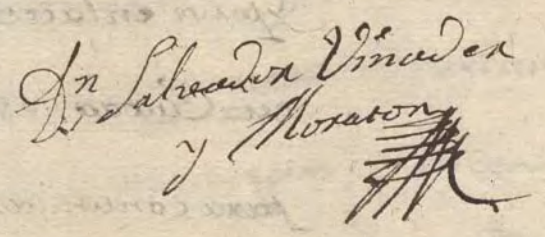 Dn Salvador Vinader
y Moraton